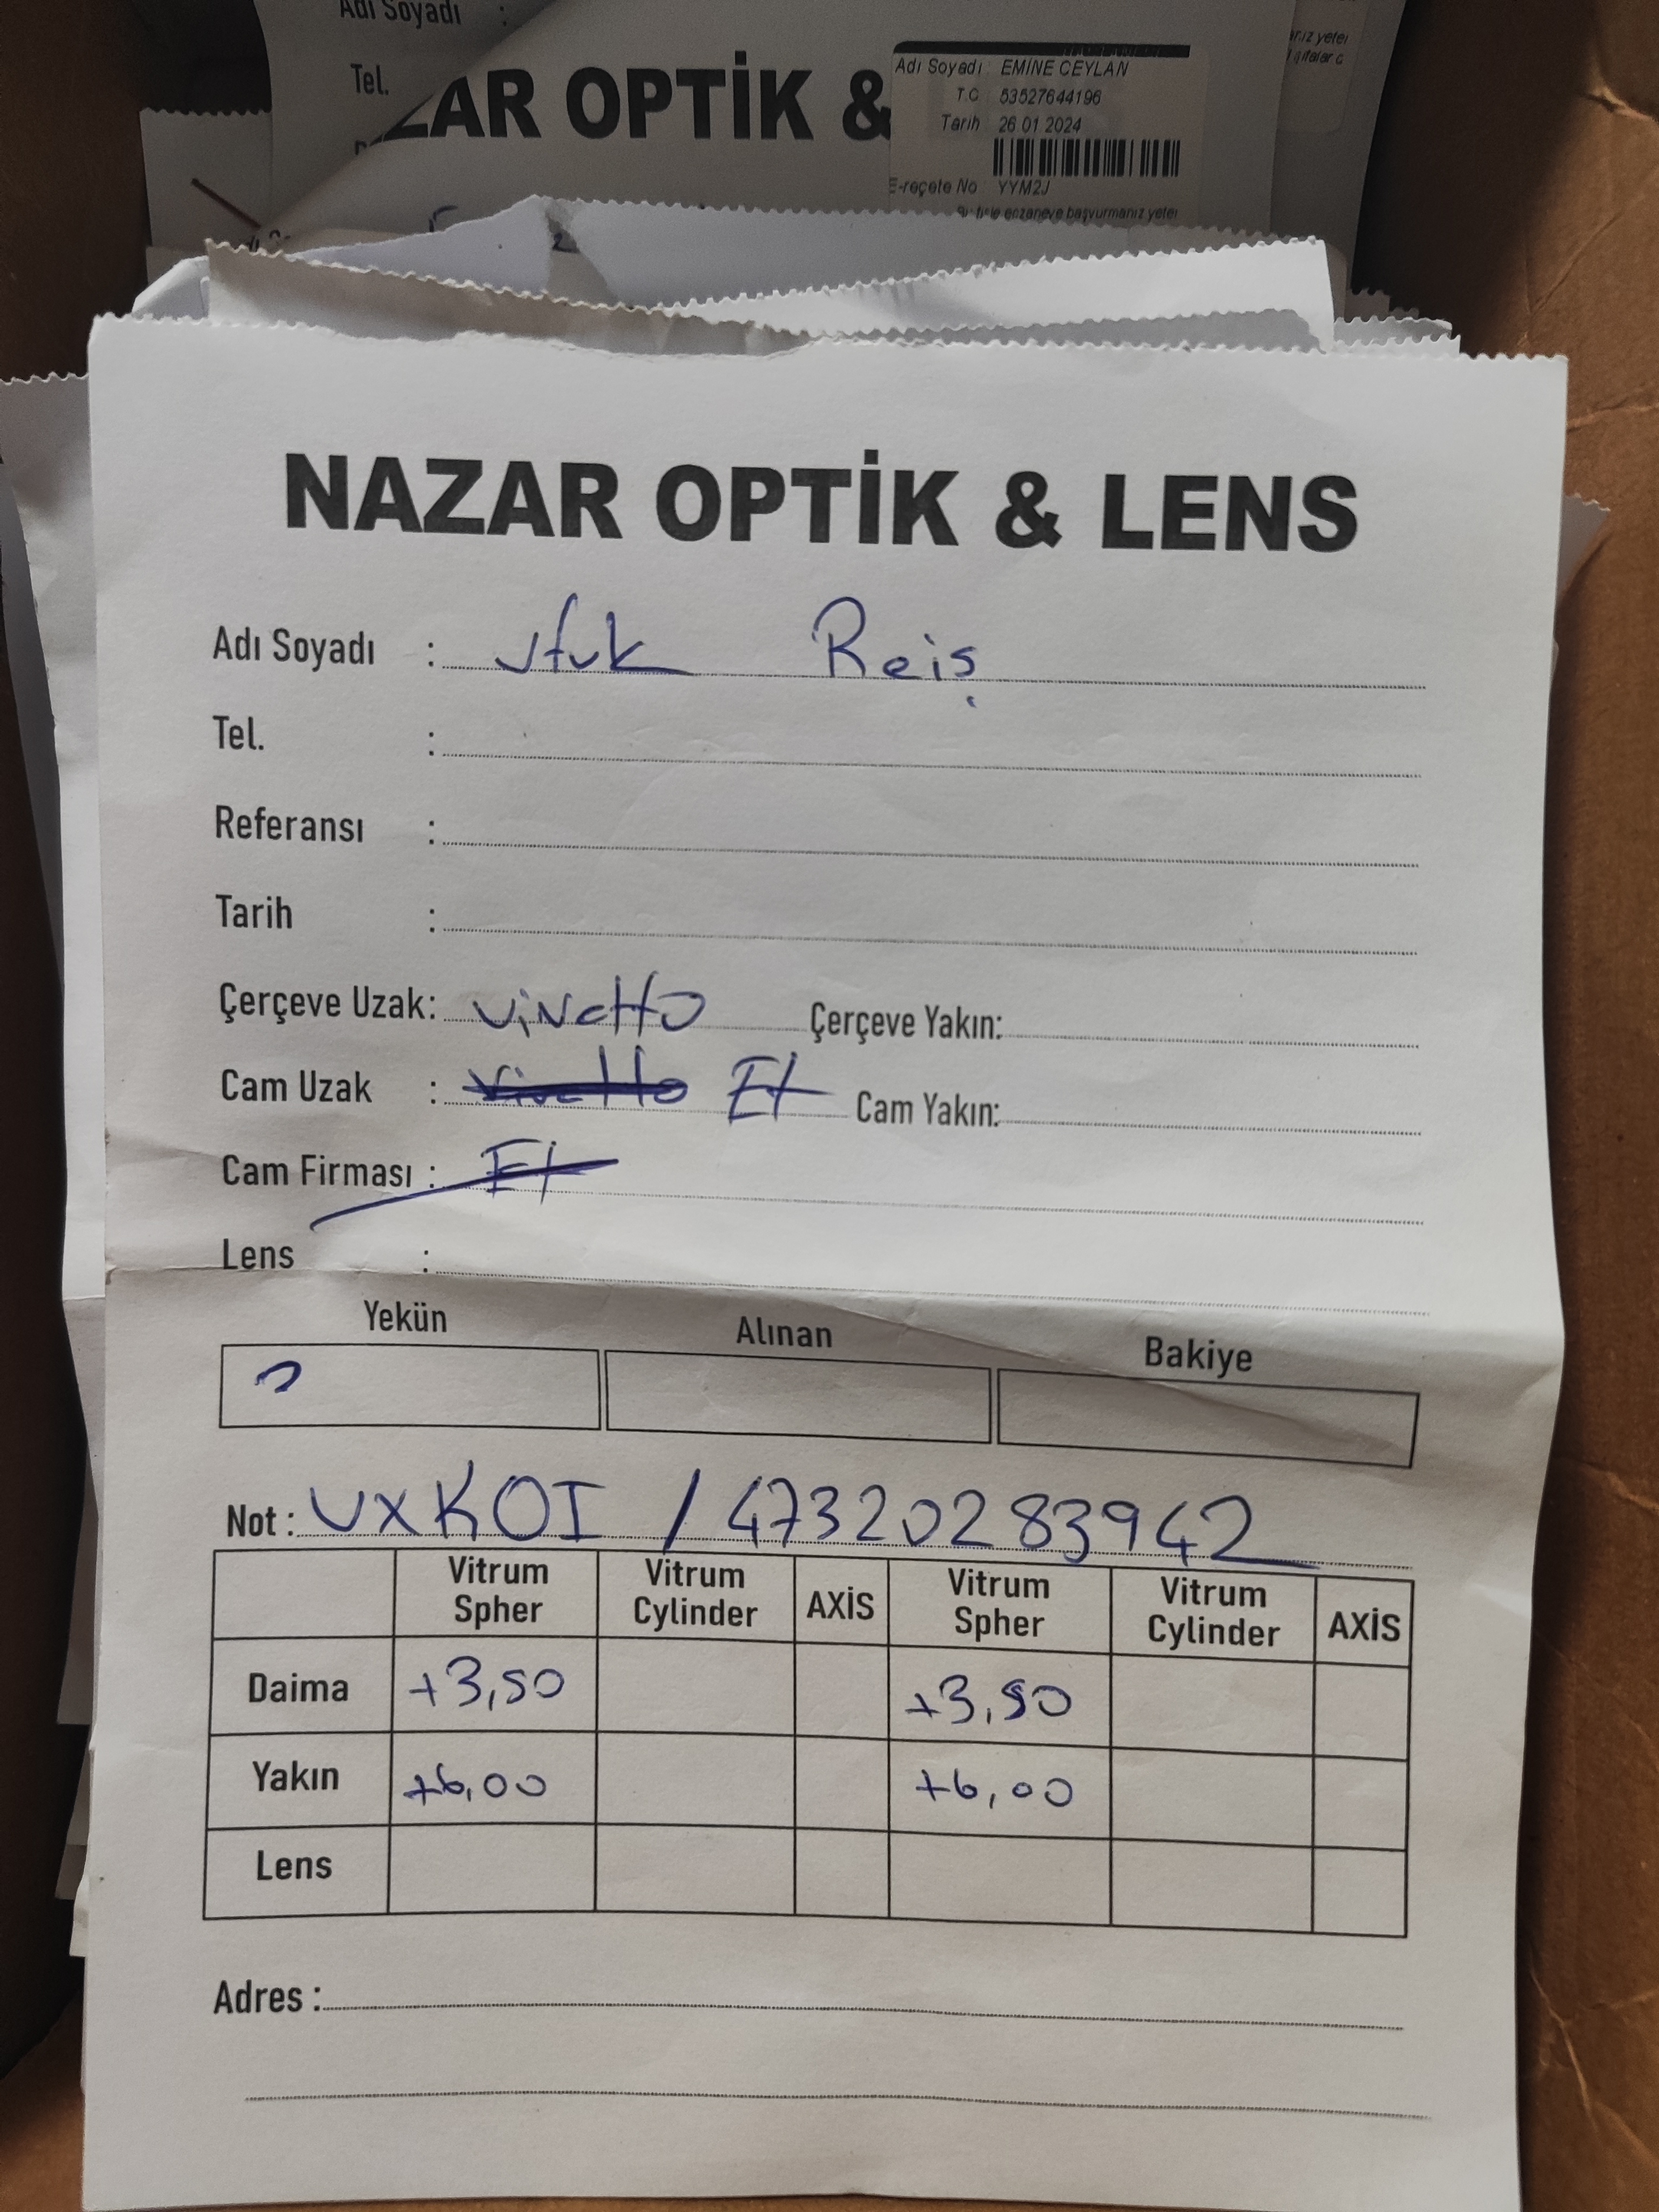 Adı Soyadı :
Tel.
ZAR OPTİK &
Adı Soyadı : EMİNE CEYLAN
T.C 53527644196
Tarih 26.01.2024
E-reçete No YYM2J
eczaneye başvurmanız yeter
NAZAR OPTİK & LENS
Adı Soyadı : Ufuk Reiş
Tel. :
Referansı :
Tarih :
Çerçeve Uzak: Vivetto Çerçeve Yakın:
Cam Uzak : Vivetto Ex Cam Yakın:
Cam Firması : Ex
Lens :
Yekün Alınan Bakiye
Not : UXKOI / 47320283942
Vitrum Spher Vitrum Cylinder AXİS Vitrum Spher Vitrum Cylinder AXİS
Daima +3,50 +3,50
Yakın +6,00 +6,00
Lens
Adres :